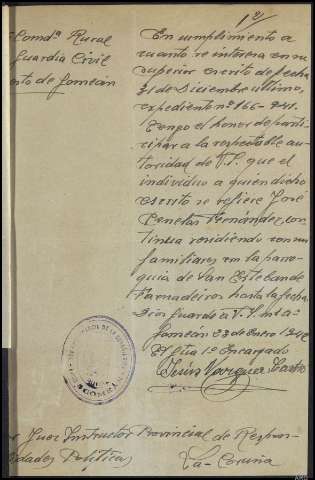 12
Comdª Rural
Guardia Civil
de Gomeán
En cumplimiento a
cuanto se interesa en su
superior escrito de fecha
31 de Diciembre último,
expediente nº 166-941.
Tengo el honor de parti-
cipar a la respetable au-
toridad de V.S. que el
individuo a quien dicho
escrito se refiere José
Penelas Fernández, con-
tinua residiendo con sus
familiares en la parro-
quia de San Esteban de
Farnadeiros hasta la fecha
Dios guarde a V.S. m. a.
Gomeán 23 de Enero 1942
El Gdia 1º Encargado
Jesús Vazquez Castro
Juez Instructor Provincial de Respon-
sidades Politicas
La-Coruña